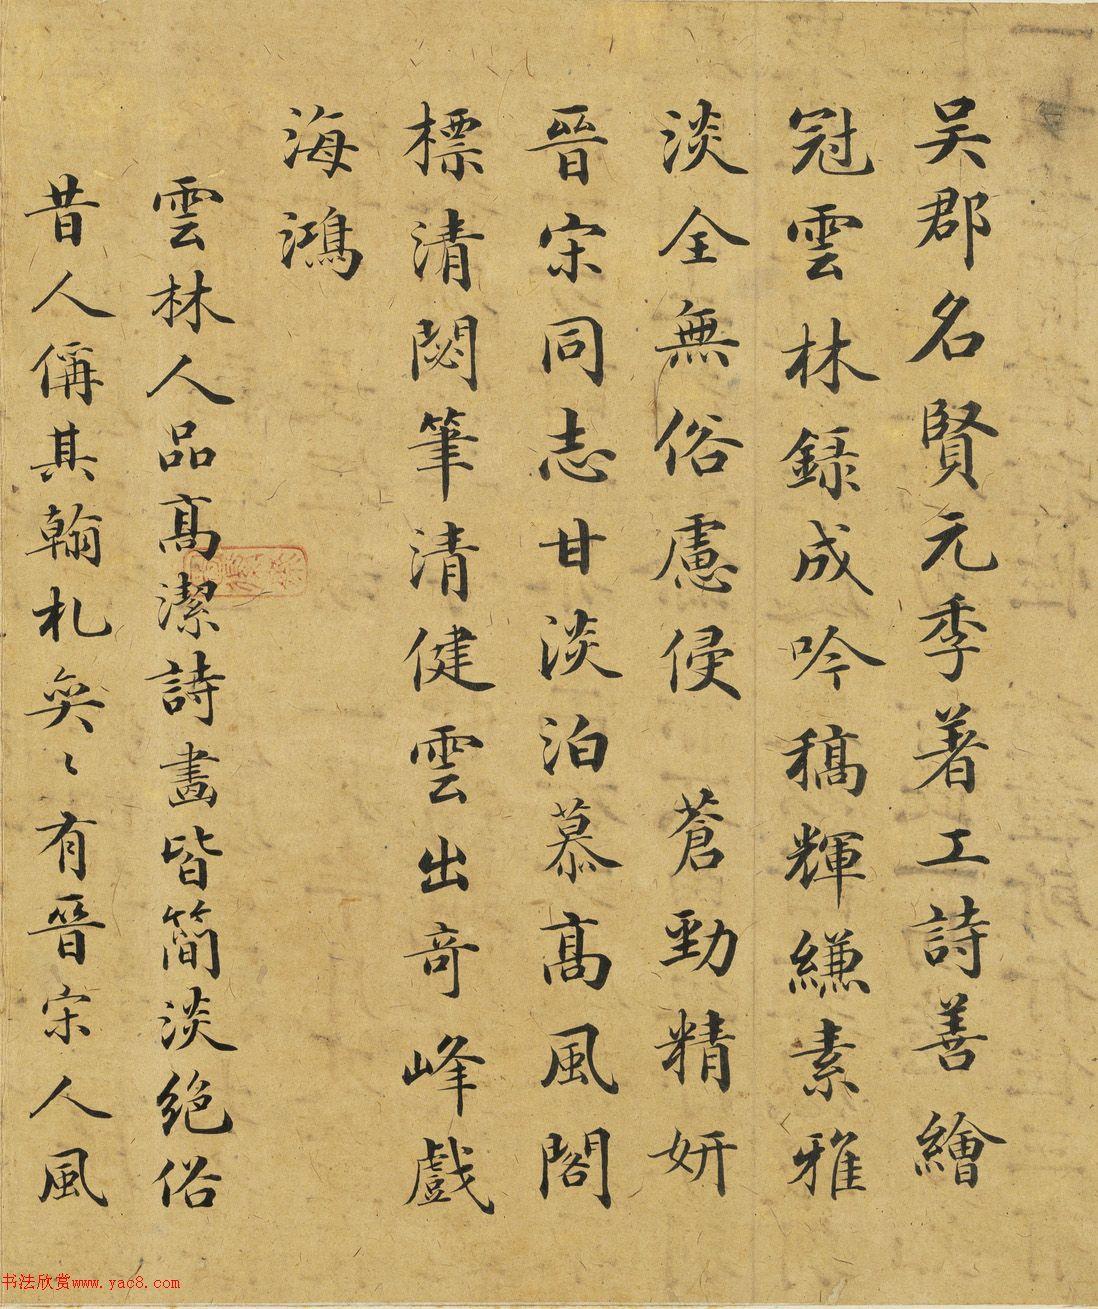 吴郡名賢元季著工詩善繪
冠雲林錄成吟稿輝縑素雅
淡全無俗慮侵　蒼勁精妍
晉宋同志甘淡泊慕高風閣
標清閟筆清健雲出奇峰戲
海鴻
雲林人品高潔詩畫皆簡淡絕俗
昔人偁其翰札奕〻有晉宋人風
书法欣赏www.yac8.com